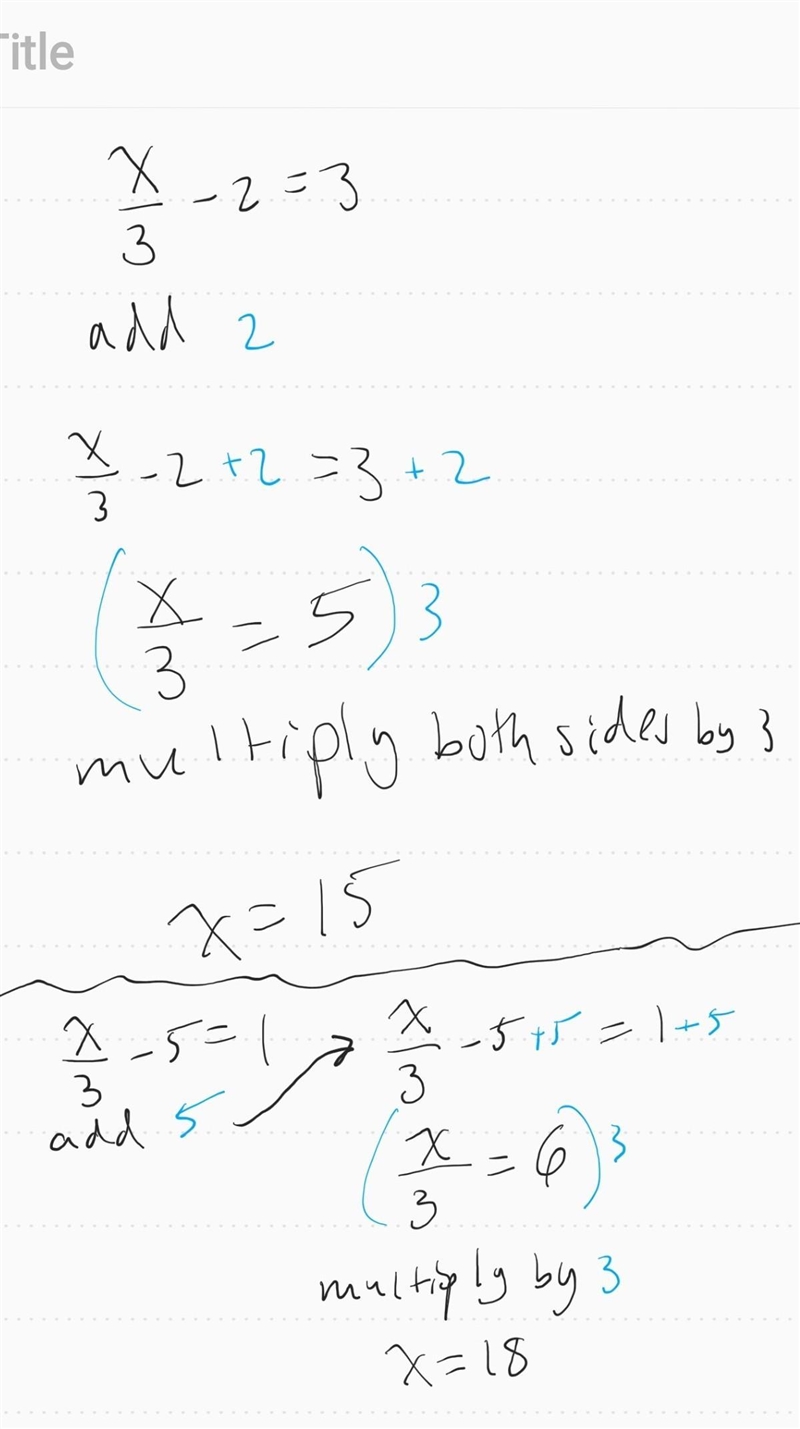 Title
x/3 - 2 = 3
add 2
x/3 - 2 + 2 = 3 + 2
(x/3 = 5) 3
multiply both sides by 3
x = 15
x/3 - 5 = 1
add 5
x/3 - 5 + 5 = 1 + 5
(x/3 = 6) 3
multiply by 3
x = 18